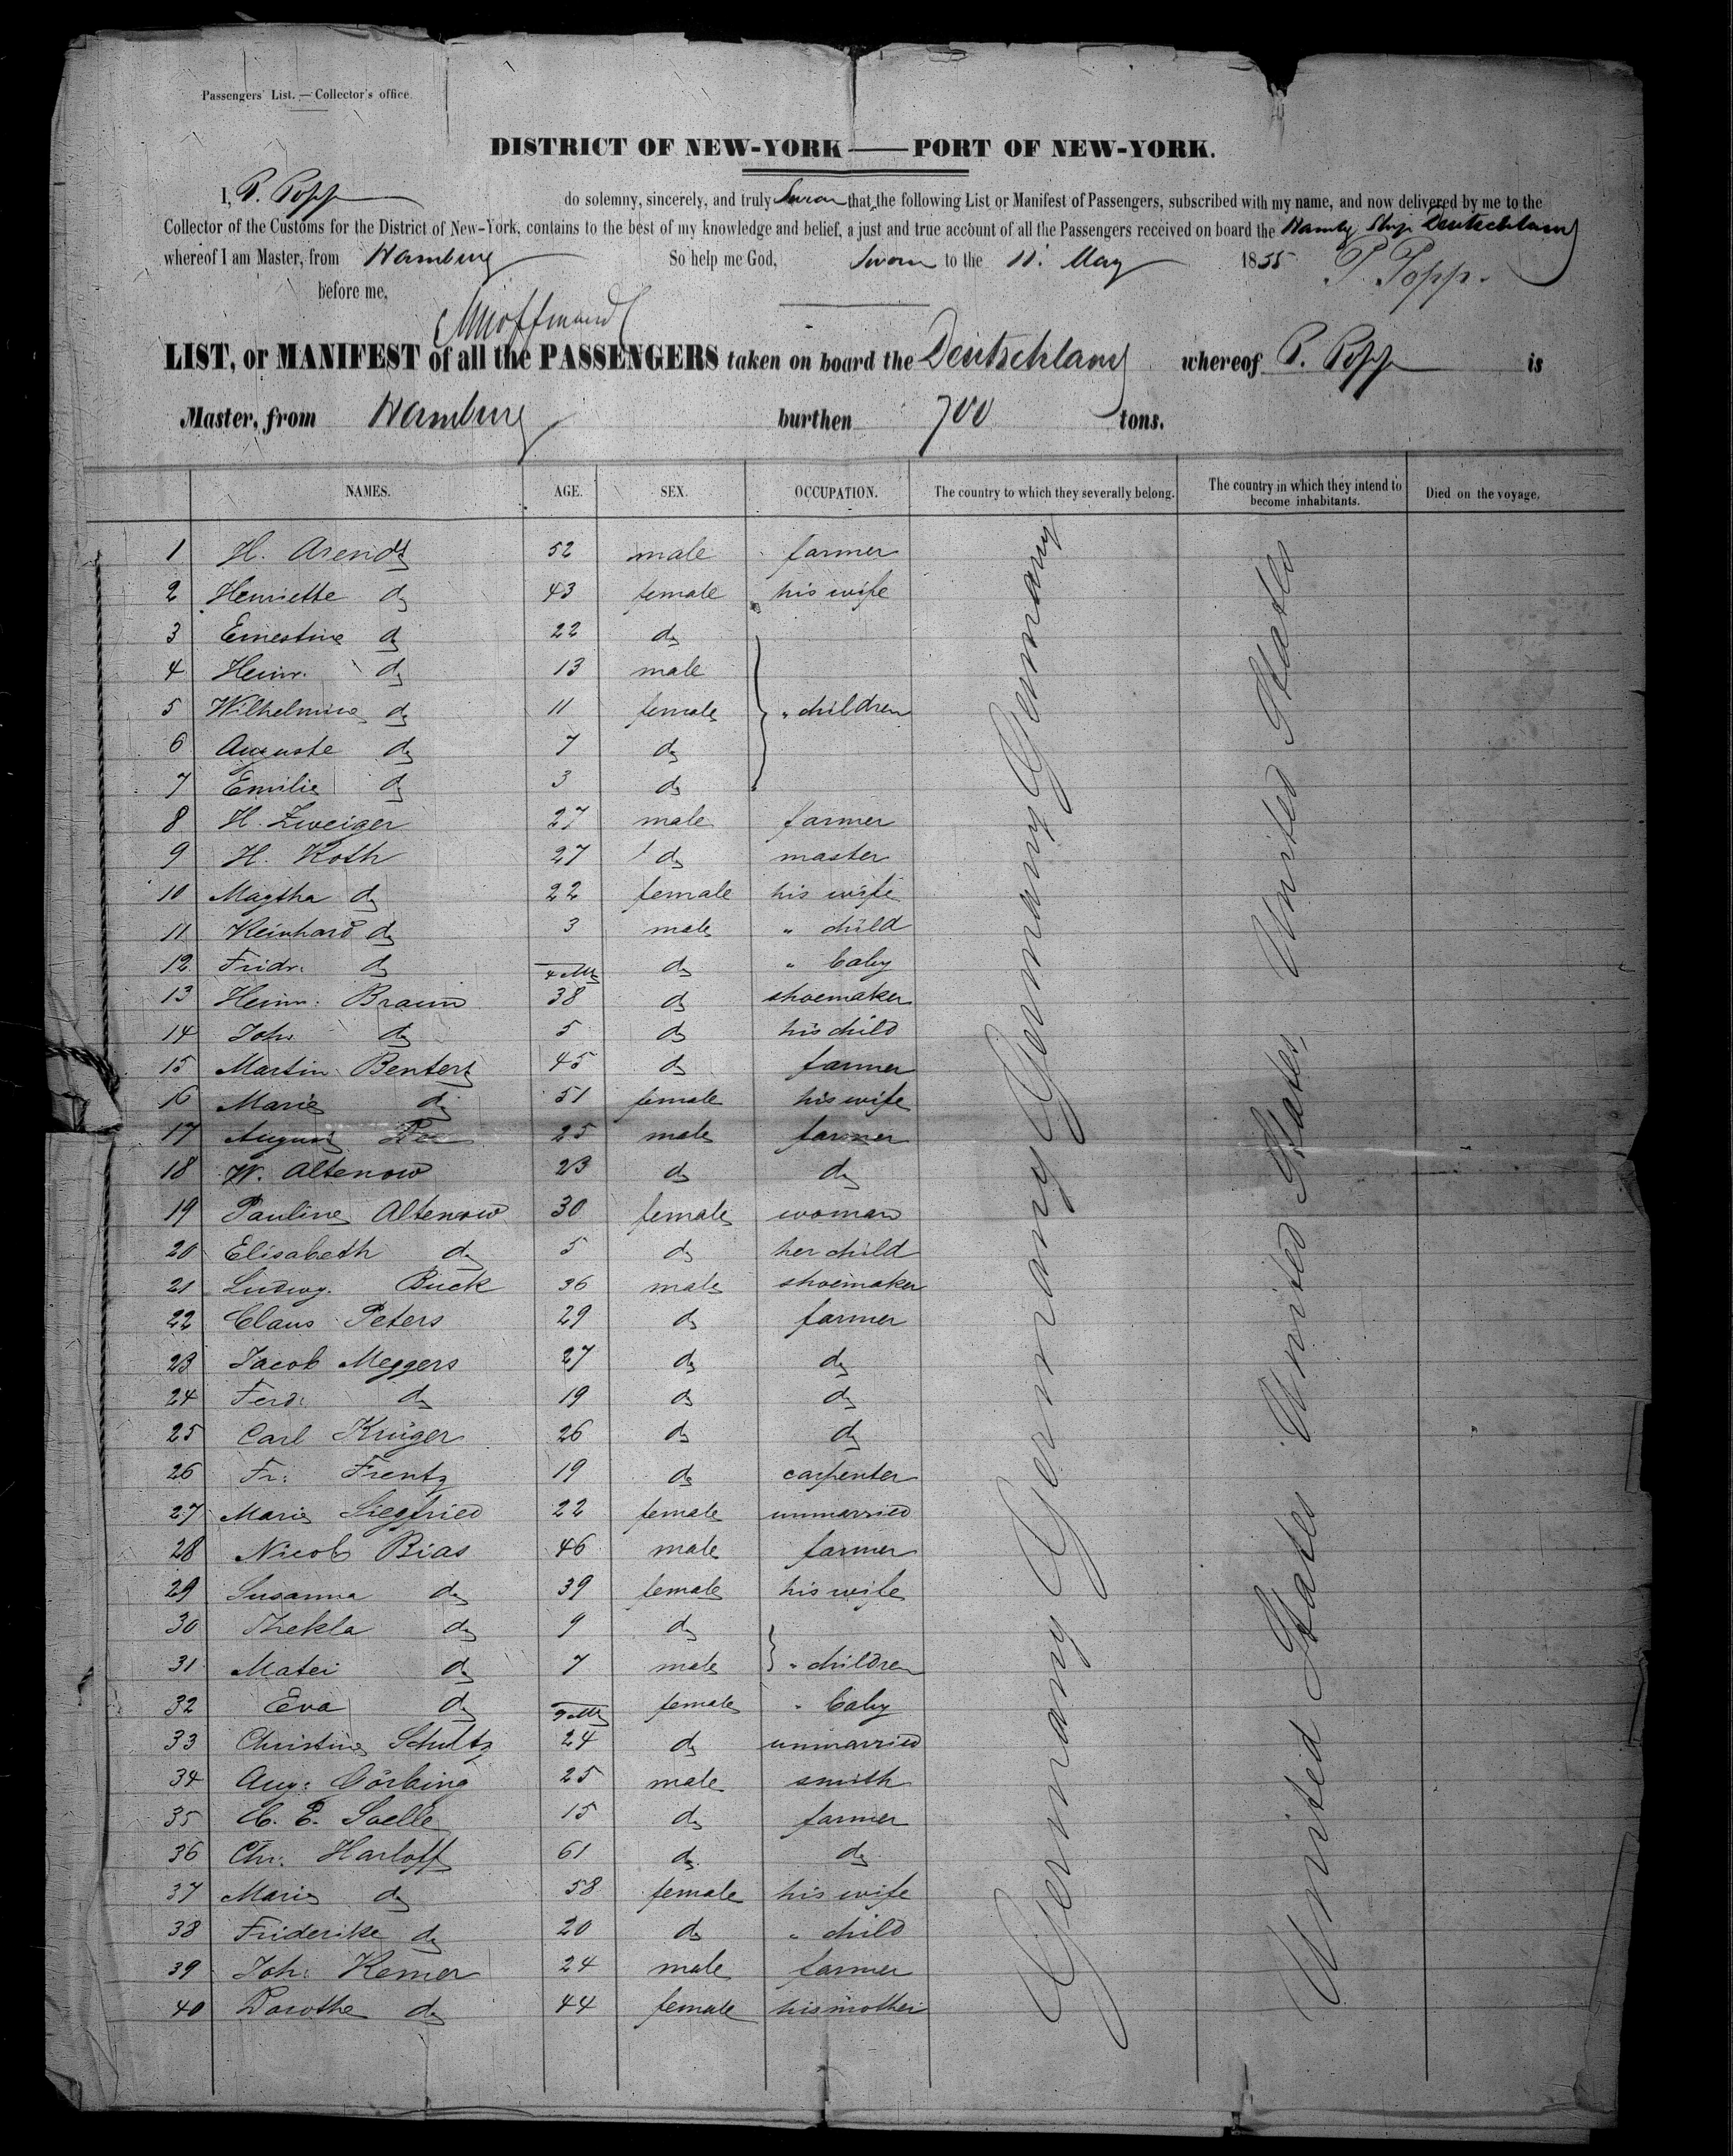 Passengers' List. — Collector's office.
DISTRICT OF NEW-YORK —— PORT OF NEW-YORK.
I, P. Popp do solemny, sincerely, and truly Swear that the following List or Manifest of Passengers, subscribed with my name, and now delivered by me to the
Collector of the Customs for the District of New-York, contains to the best of my knowledge and belief, a just and true account of all the Passengers received on board the Hambg Ship Deutschland
whereof I am Master, from Hamburg So help me God, Sworn to the 11. May 1855 P. Popp.
before me,
LIST, or MANIFEST of all the PASSENGERS taken on board the Deutschland whereof P. Popp is
Master, from Hamburg burthen 700 tons.
NAMES. AGE. SEX. OCCUPATION. The country to which they severally belong. The country in which they intend to become inhabitants. Died on the voyage.
1 H. Arendt 52 male farmer
2 Henriette do 43 female his wife
3 Ernestine do 22 do
4 Heinr. do 13 male
5 Wilhelmine do 11 female " children
6 Auguste do 7 do
7 Emilie do 3 do
8 H. Zweiger 27 male farmer
9 H. Roth 27 do master
10 Magtha do 22 female his wife
11 Reinhard do 3 male " child
12 Fridr. do 4 M do " baby
13 Heinr. Braun 38 do shoemaker
14 Joh. do 5 do his child
15 Martin Bentert 45 do farmer
16 Marie do 51 female his wife
17 August 25 male farmer
18 W. Altenow 23 do do
19 Pauline Altenow 30 female woman
20 Elisabeth do 5 do her child
21 Ludwg. Buck 36 male shoemaker
22 Claus Peters 29 do farmer
23 Jacob Meggers 27 do do
24 Ferd. do 19 do do
25 Carl Krüger 26 do do
26 Fr. Frentz 19 do carpenter
27 Marie Siegfried 22 female unmarried
28 Nicol Bias 46 male farmer
29 Susanna do 39 female his wife
30 Thekla do 9 do
31 Matei do 7 male " children
32 Eva do 9 M female " baby
33 Christine Schultz 24 do unmarried
34 Aug. Görbing 25 male smith
35 C. E. Saelle 15 do farmer
36 Chr. Harloff 61 do do
37 Marie do 58 female his wife
38 Friderike do 20 do " child
39 Joh. Kemer 24 male farmer
40 Dorothe do 44 female his mother
Germany Germany Germany Germany Germany
United States United States, United States